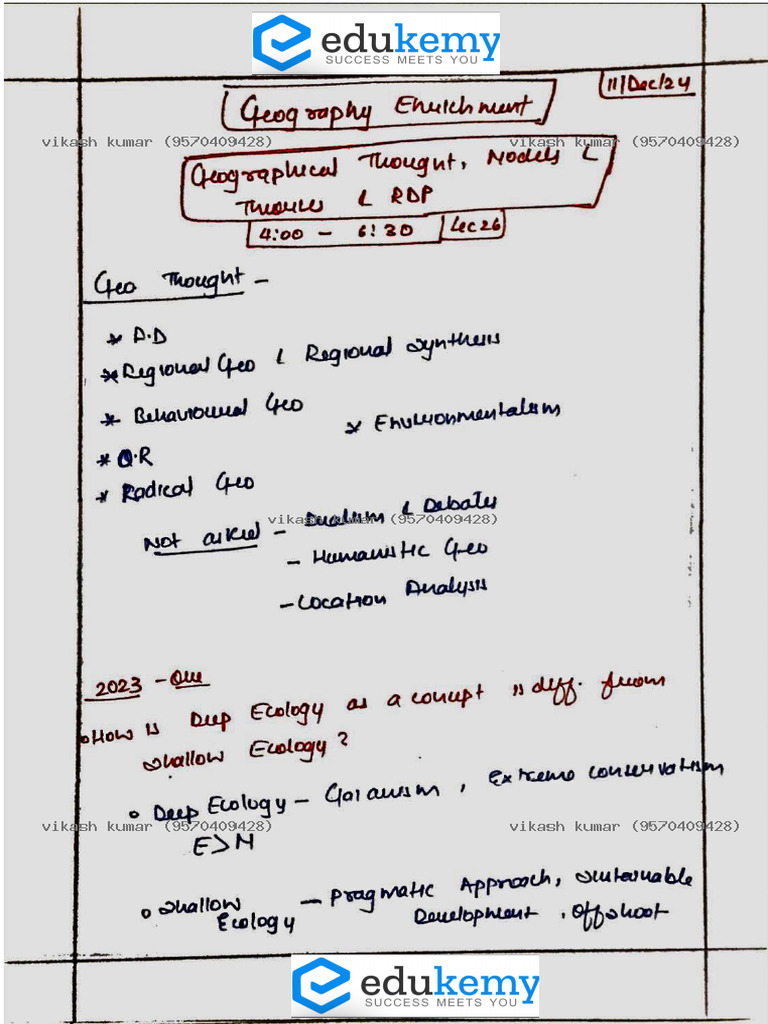 edukemy
SUCCESS MEETS YOU
11/Dec/24
Geography Enrichment
vikash kumar (9570409428) vikash kumar (9570409428)
Geographical Thought, Models &
Theories & RDP
4:00 - 6:30 Lec 26
Geo Thought -
* A.D
* Regional Geo & Regional Synthesis
* Behavioural Geo
* Environmentalism
* Q.R
* Radical Geo
vikash kumar (9570409428)
Not asked - Dualism & Debates
- Humanistic Geo
- Location Analysis
2023 - Que
• How is Deep Ecology as a concept is diff. from
shallow Ecology?
• Deep Ecology - Gaianism, Extreme conservatism
vikash kumar (9570409428) vikash kumar (9570409428)
E>M
• shallow Ecology - Pragmatic Approach, sustainable
Development, offshoot
edukemy
SUCCESS MEETS YOU